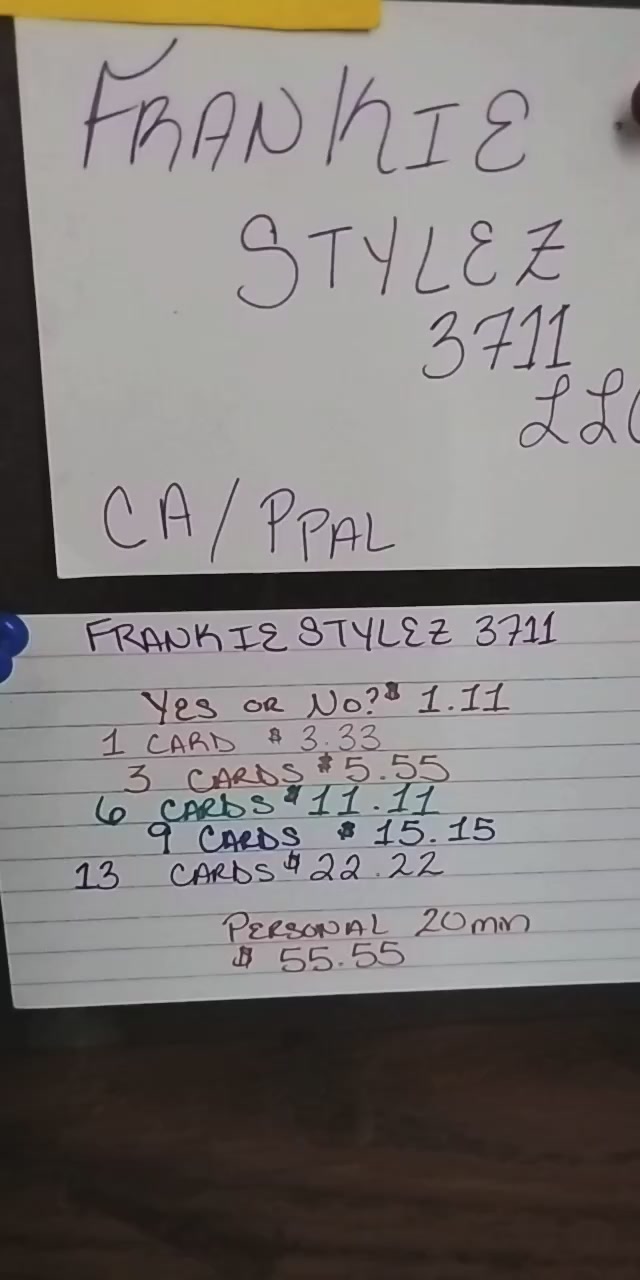 FRANKIE
STYLEZ
3711
LLC
CA/PPAL
FRANKIE STYLEZ 3711
YES OR NO? $ 1.11
1 CARD $ 3.33
3 CARDS $5.55
6 CARDS $11.11
9 CARDS $ 15.15
13 CARDS $22.22
PERSONAL 20min
$ 55.55